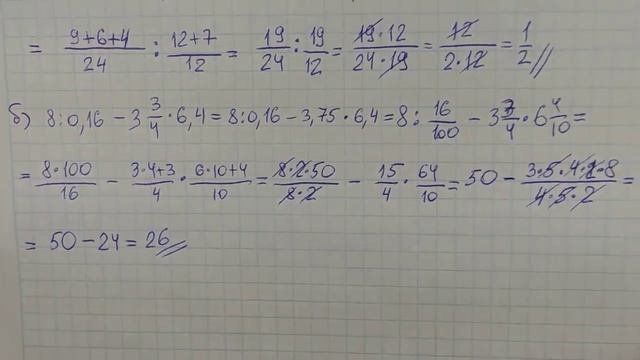 = (9+6+4)/24 : (12+7)/12 = 19/24 : 19/12 = (19·12)/(24·19) = 12/(2·12) = 1/2 //
б) 8:0,16 − 3 3/4 · 6,4 = 8:0,16 − 3,75 · 6,4 = 8 : 16/100 − 3 3/4 · 6 4/10 =
= (8·100)/16 − (3·4+3)/4 · (6·10+4)/10 = (8·2·50)/(8·2) − 15/4 · 64/10 = 50 − (3·5·4·2·8)/(4·5·2) =
= 50 − 24 = 26 //